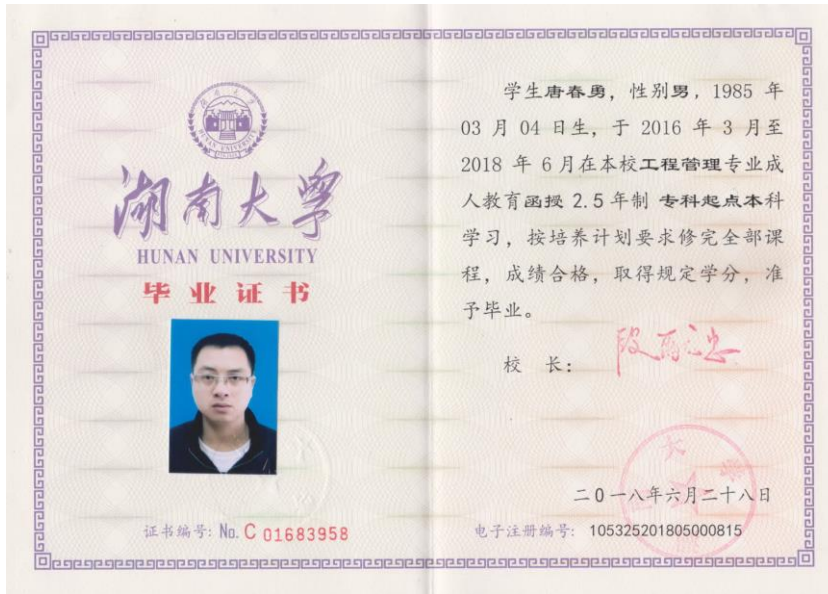 湖南大学
HUNAN UNIVERSITY
毕业证书
证书编号: No. C 01683958
学生唐春勇，性别男，1985 年
03 月 04 日生，于 2016 年 3 月至
2018 年 6 月在本校工程管理专业成
人教育函授 2.5 年制 专科起点本科
学习，按培养计划要求修完全部课
程，成绩合格，取得规定学分，准
予毕业。
校 长:
二0一八年六月二十八日
电子注册编号: 105325201805000815